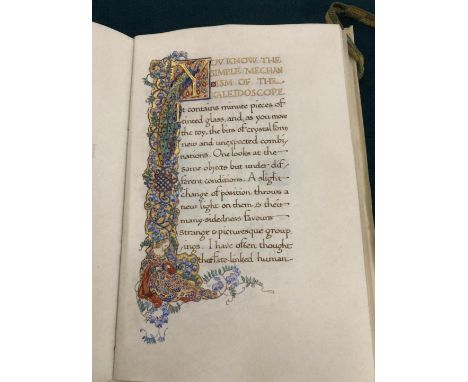 YOU KNOW THE
SIMPLE MECHAN
ISM OF THE
KALEIDOSCOPE.
It contains minute pieces of
tinted glass, and, as you move
the toy, the bits of crystal form
new and unexpected combi
nations. One looks at the
same objects but under dif
ferent conditions. A slight
change of position throws a
new light on them, & their
many-sidedness favours
strange & picturesque group
ings. I have often thought
that fate-linked human